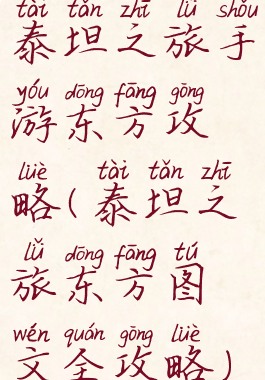 tài tǎn zhī lǚ shǒu
泰坦之旅手
yóu dōng fāng gōng
游东方攻
lüè tài tǎn zhī
略(泰坦之
lǚ dōng fāng tú
旅东方图
wén quán gōng lüè
文全攻略)